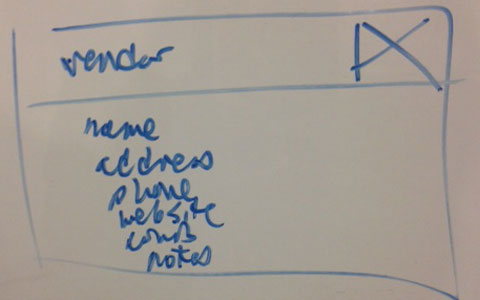 vendor
name
address
phone
website
notes